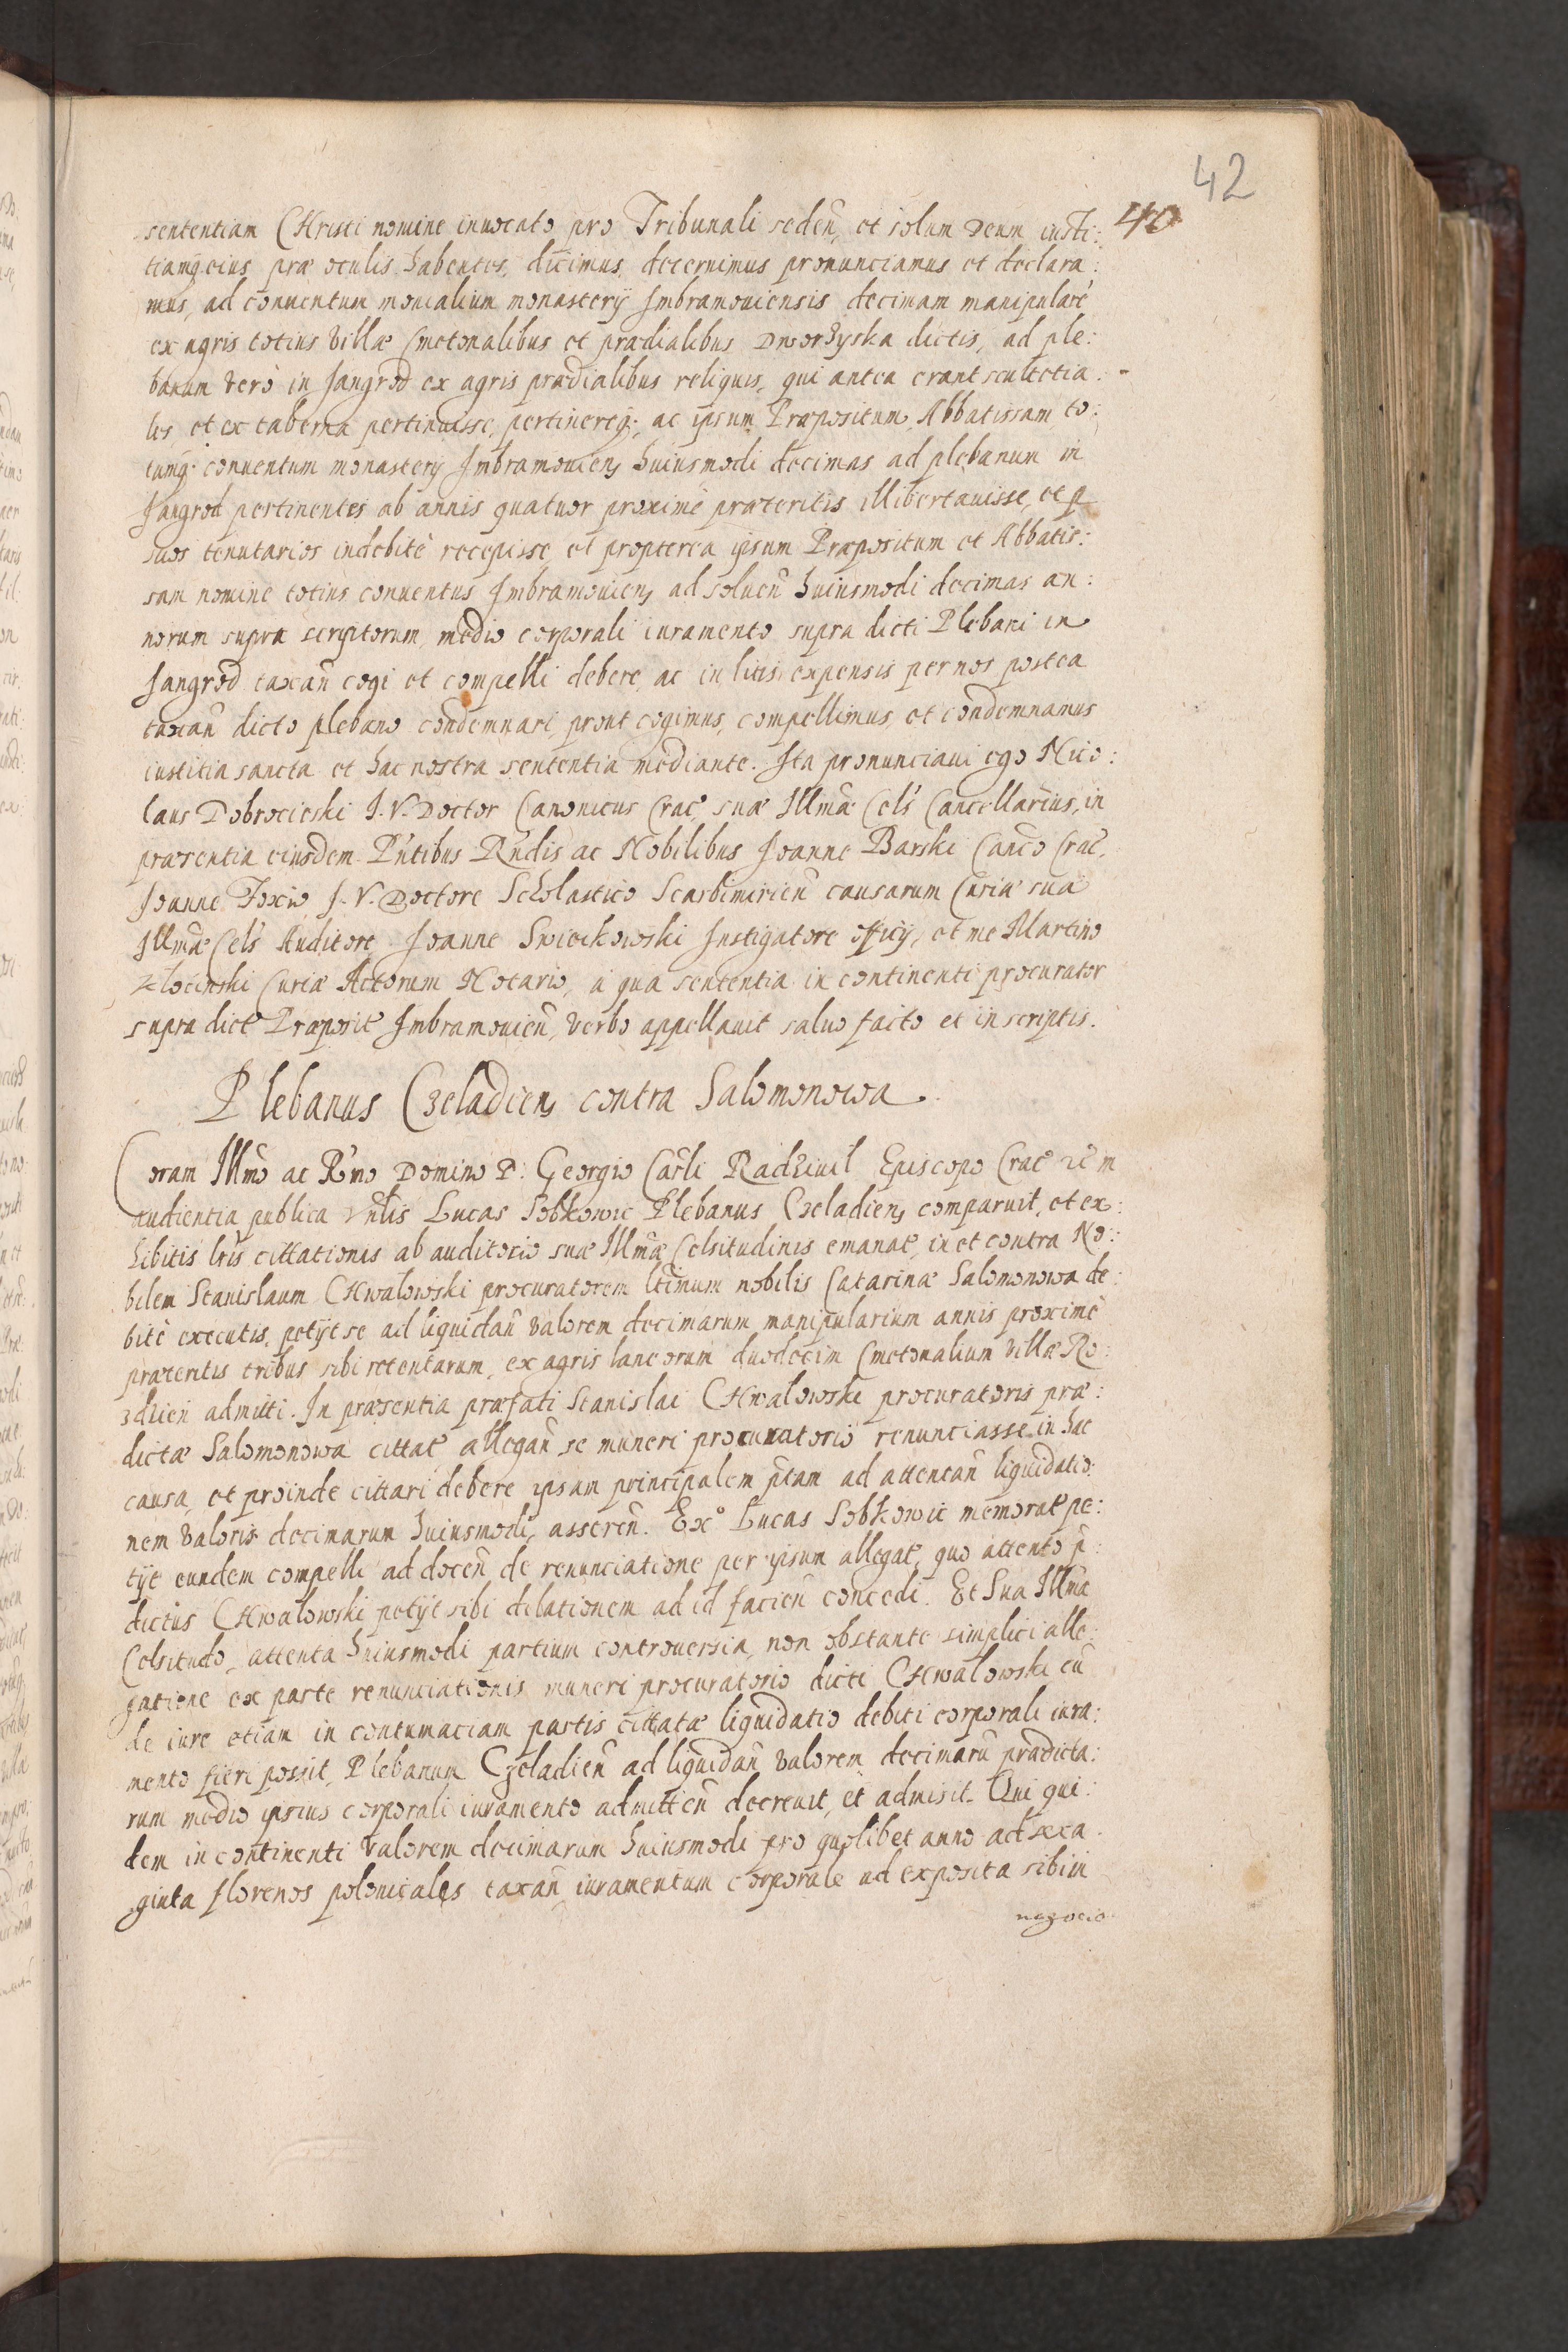 42
40
sententiam CHristi nomine inuocato pro Tribunali seden̄, et solum Deum iusti:
tiamq̢ eius præ oculis habentes, dicimus, decernimus pronunciamus et declara:
mus, ad conuentum monialium monasterÿ Imbramouiensis decimam manipularē
ex agris totius Villæ Cmetonalibus et prædialibus Dworzyska dictis, ad ple:
banum verò in Jangrod ex agris prædialibus reliquis, qui antea erant scultetia:
les et ex taberna pertinuisse, pertinereq̢, ac ipsum Præpositum, Abbatissam, to:
tumq̢ conuentum monasterÿ Imbramouien̄ huiusmodi decimas ad plebanum in
Jangrod pertinentes ab annis quatuor proximè præteritis illibertauisse, et p̱
suos tenutarios indebitè recepisse, et propterea ipsum Præpositum et Abbatis:
sam nomine totius conuentus Imbramouien̄ ad soluen̄ huiusmodi decimas an:
norum supra scriptorum, medio corporali iuramento supra dicti Plebani in
Jangrod taxan̄ cogi et compelli debere, ac in litis expensis per nos postea
taxan̄ dicto plebano condemnari, prout cogimus, compellimus, et condemnamus
iustitia sancta et hac nostra sententia mediante. Ita pronunciaui ego Nico:
laus Dobrocieski J. V. Doctor Canonicus Crac̄, suæ Illmæ Cels̄ Cancellarius, in
præsentia eiusdem. Pn̄tibus Rn̄dis ac Nobilibus Joanne Barski Canc̄o Crac̄,
Joanne Foxio J. V. Doctore Scholastico Scarbimirien̄ causarum Curiæ suæ
Illmæ Cels̄ Auditore, Joanne Swieckowski Instigatore officÿ, et me Martino
Zlocinski Curiæ Actorum Notario, a qua sententia in continenti procurator
supra dict̄ Præposit̄ Imbramouien̄, verbo appellauit saluo facto et in scriptis.
Plebanus Czeladien̄ contra Salomonowa.
Coram Illmo ac Rmo Domino D: Georgio Carli Radziuil Episcopo Crac̄ in
audientia publica Vn̄lis Lucas Sobkowic Plebanus Czeladien̄ comparuit, et ex:
hibitis lr̄is cittationis ab auditorio suæ Illmæ Celsitudinis emanat̄, in et contra No:
bilem Stanislaum CHwalowski procuratorem ltimum nobilis Catarinæ Salomonowa de:
bitè executis, petÿt se ad liquidan̄ valorem decimarum manipularium annis proximè
præteritis tribus sibi retentarum, ex agris laneorum duodecim Cmetonalium Villæ Ro:
zdzien̄ admitti. In præsentia præfati Stanislai CHwalowski procuratoris præ:
dictæ Salomonowa cittat̄ allegan̄ se muneri procuratorio renunciasse in hac
causa, et proinde cittari debere ipsam principalem p̄tam ad attentan̄ liquidatio:
nem valoris decimarum huiusmodi, asseren̄. Exº Lucas Sobkowic memorat̄ pe:
tÿt eundem compelli ad docen̄ de renunciatione per ipsum allegat̄, quo attento p̄:
dictus CHwalowski petÿt sibi dilationem ad id facien̄ concedi. Et Sua Illma
Celsitudo, attenta huiusmodi partium controuersia, non obstante simplici alle:
gatione ex parte renunciationis muneri procuratorio dicti CHwalowski cū
de iure etiam in contumaciam partis cittatæ liquidatio debiti corporali iura:
mento fieri possit, Plebanum Czeladien̄ ad liquidan̄ valorem decimarū prædicta:
rum medio ipsius corporali iuramento admitten̄ decreuit, et admisit. Qui qui:
dem in continenti valorem decimarum huiusmodi pro quolibet anno ad sexa:
ginta florenos polonicales taxan̄ iuramentum corporale ad exposita sibi in
negocio